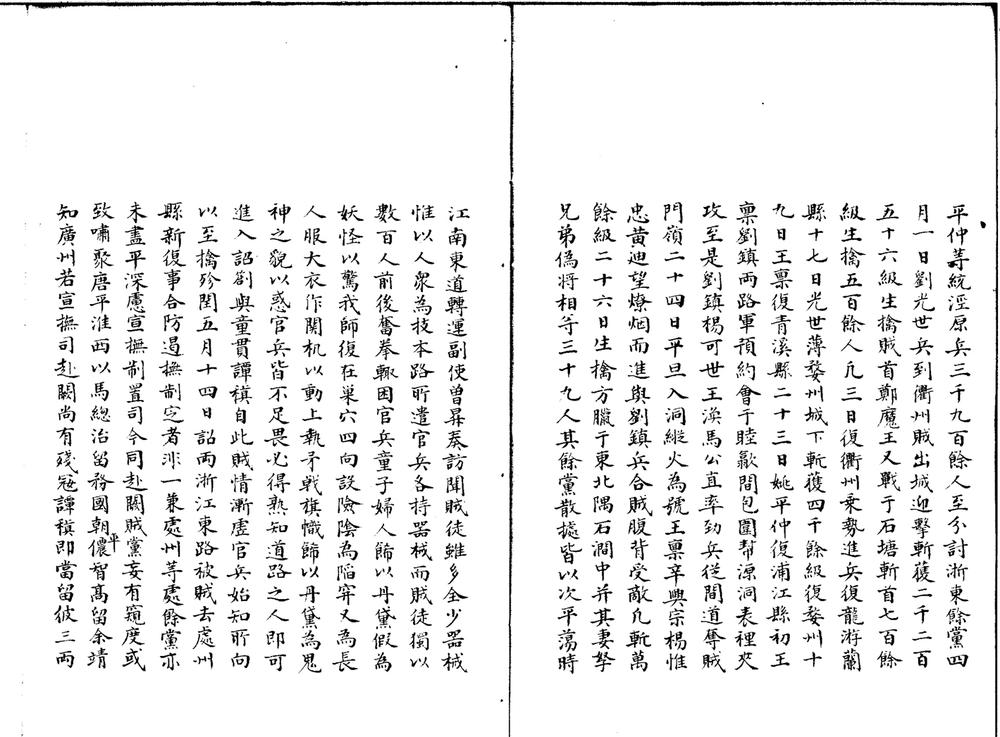 平仲等統涇原兵三千九百餘人至分討浙東餘黨四
月一日劉光世兵到衢州賊出城迎擊斬獲二千二百
五十六級生擒賊首鄭魔王又戰于石塘斬首七百餘
級生擒五百餘人凡三日復衢州乗勢進兵復龍游蘭
縣十七日光世薄婺州城下斬獲四千餘級復婺州十
九日王禀復青溪縣二十三日姚平仲復浦江縣初王
禀劉鎮兩路軍預約會于睦歙間包圍幇源洞表裡夾
攻至是劉鎮楊可世王渙馬公直率劲兵從間道奪賊
門嶺二十四日平旦入洞縱火為號王禀辛興宗楊惟
忠黄迪望燎烟而進與劉鎮兵合賊腹背受敵凡斬萬
餘級二十六日生擒方臘于東北隅石澗中并其妻孥
兄弟偽將相等三十九人其餘黨散據皆以次平蕩時
江南東道轉運副使曾㫒奏訪聞賊徒雖多全少器械
惟以人衆為技本路所遣官兵各持器械而賊徒獨以
數百人前後奮拳輙困官兵童子婦人飾以丹黛假為
妖怪以驚我師復在巢穴四向設險陰為陷穽又為長
人服大衣作関机以動上執矛戟旗幟飾以丹黛為鬼
神之貌以惑官兵皆不足畏必得熟知道路之人即可
進入詔劄與童貫譚稹自此賊情漸虚官兵始知所向
以至擒殄閏五月十四日詔兩浙江東路被賊去處州
縣新復事合防遏撫制㝎者非一兼處州等處餘黨亦
未盡平深慮宣撫制置司令同赴闕賊黨妄有窺度或
致嘯聚唐平淮西以馬總治留務國朝平儂智髙留余靖
知廣州若宣撫司赴闕尚有殘冦譚稹即當留彼三两